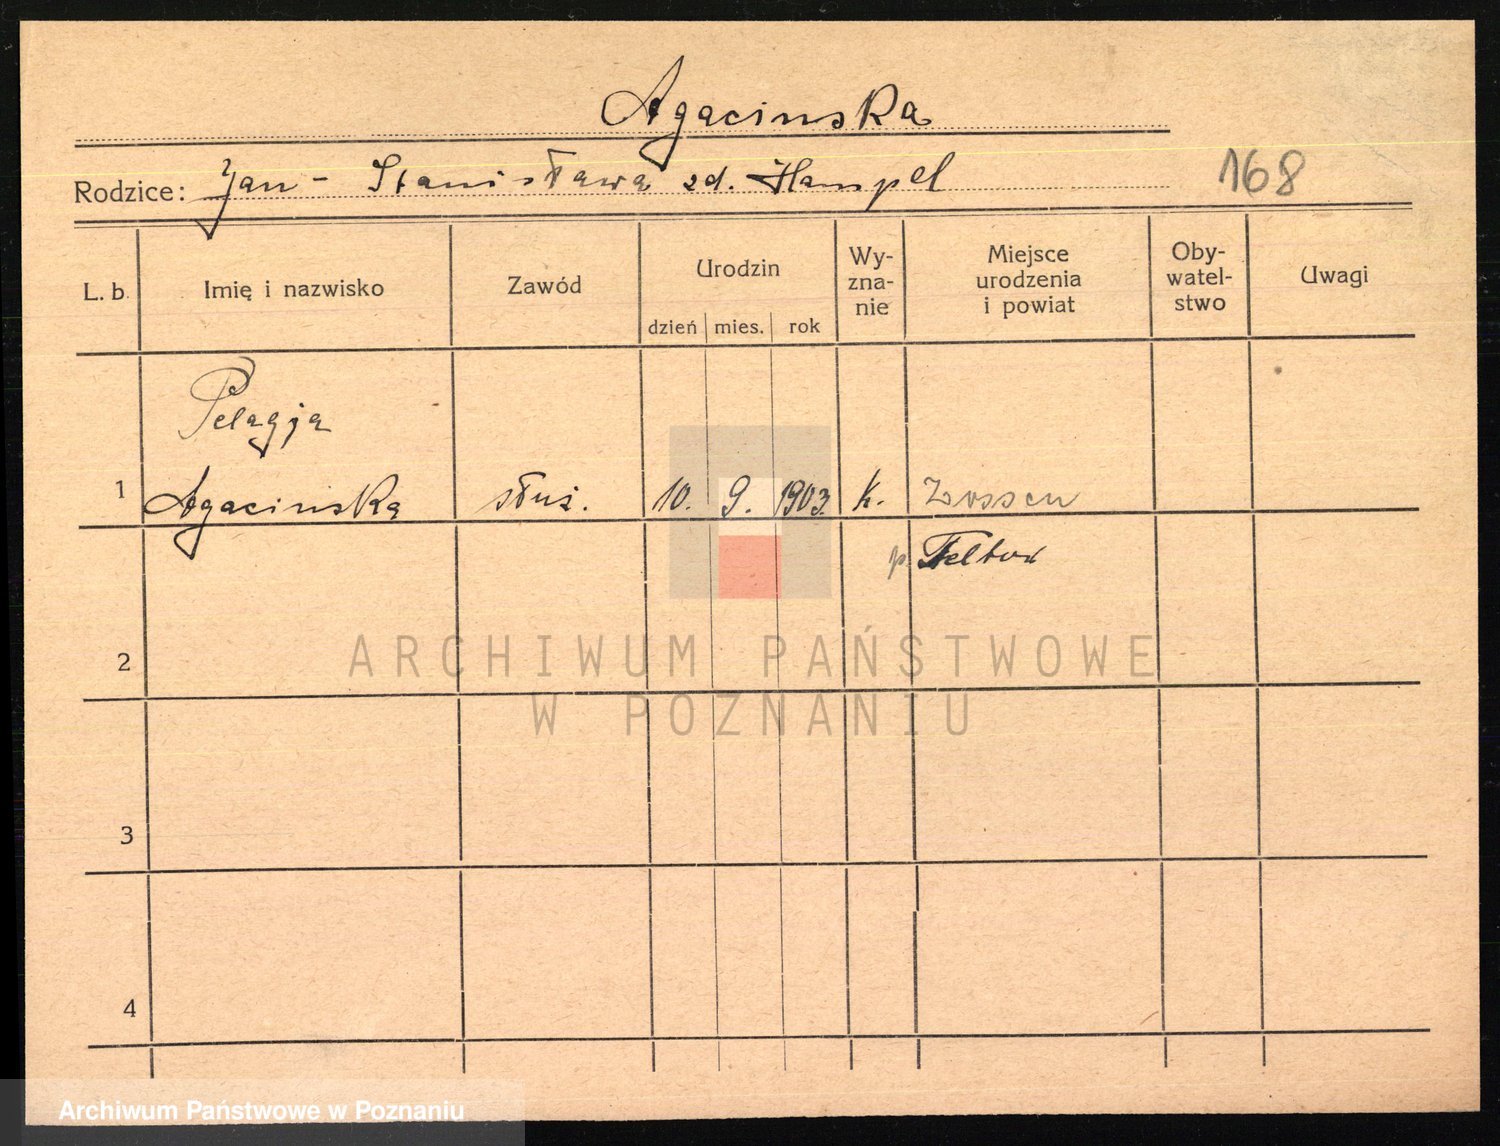 Agacinska
Rodzice: Jan - Stanisława zd. Hampel 168
L. b. Imię i nazwisko Zawód Urodzin dzień mies. rok Wyznanie Miejsce urodzenia i powiat Obywatelstwo Uwagi
Pelagja
1 Agacinska służ. 10. 9. 1903. k. Zossen
p. Teltow
2
ARCHIWUM PAŃSTWOWE
W POZNANIU
3
4
Archiwum Państwowe w Poznaniu